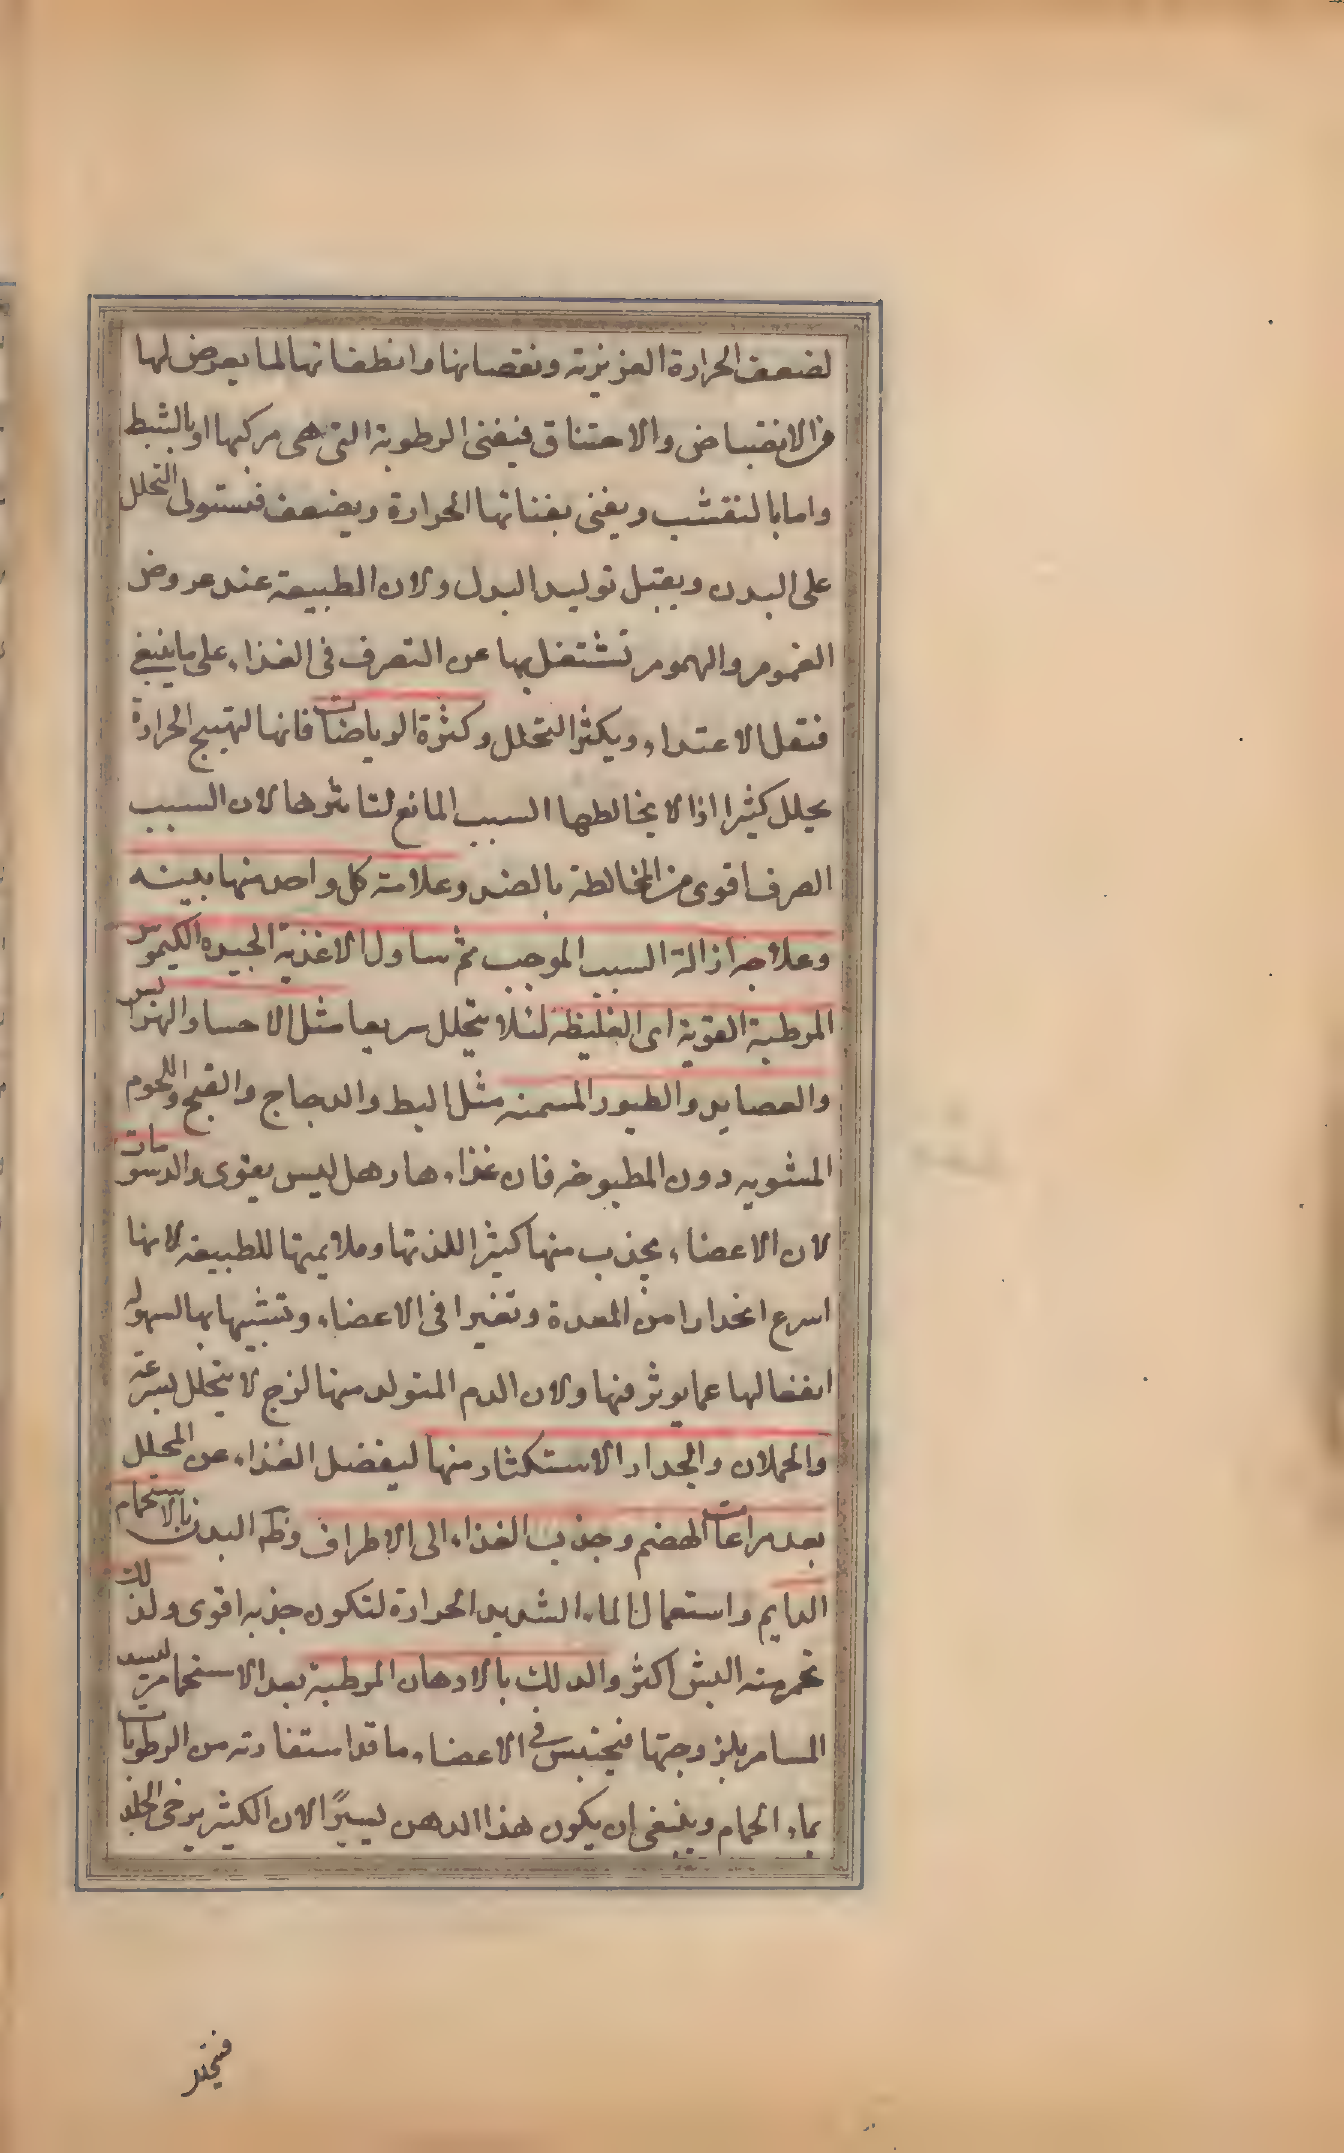 لضعف الحرارة الغريزية ونقصانها وانطفائها لما يعرض لها
من الانقباض والاختناق فيفنى الرطوبة التى هى مركبها او بالنشط
واما بالتقشب ويفنى بفنائها الحرارة ويضعف فيستولى التحلل
على البدن ويقبل توليد البدل ولان الطبيعة عند عروض
الغموم والهموم تشتغل بها عن التصرف فى الغذاء على ما ينبغى
فتقل الاغتذاء ويكثر التحلل وكثرة الرياضات فانها لتهييج الحرارة
يحلل كثيرا اذا لا يخالطها السبب المانع لتاثيرها لان السبب
الصرف اقوى من المخالطة بالضد وعلامة كل واحد منها بينه
وعلاجه ازالة السبب الموجب ثم تناول الاغذية الجيده الكيموس
المرطبة القوية اى الغليظه لئلا يتحلل سريعا مثل الاحسا والهرايس
والعصايد والطيور المسمنه مثل البط والدجاج والقبج واللحوم
المشويه دون المطبوخه فان غذاءها رهل ليس بقوى والدسومات
لان الاعضاء يجذب منها كثيرا للذتها وملايمتها للطبيعه لانها
اسرع انحدارا من المعدة وتغيرا فى الاعضاء وتشبيها بها لسهوله
انفعالها عما يوثر فيها ولان الدم المتولد منها لزج لا يتحلل بسرعة
والحملان والجدا والاستكثار منها ليفضل الغذاء عن المحلل
بعد مراعات الهضم وجذب الغذاء الى الاطراف وظاهر البدن بالاستحمام
الدايم واستعمال الماء الشديد الحرارة لتكون جذبه اقوى ولذلك
تحمر منه البشر اكثر والدلك بالادهان المرطبة بعد الاستحمام ليسد
المسام بلزوجتها فيحتبس فى الاعضاء ما قد استفادته من الرطوبات
بماء الحمام وينبغى ان يكون هذا الدهن يسيرًا لان الكثير يرخى الجلد